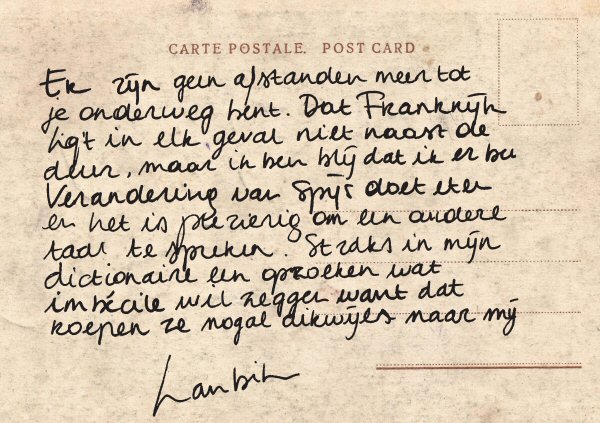 CARTE POSTALE. POST CARD
Er zijn geen afstanden meer tot
je onderweg bent. Dat Frankrijk
ligt in elk geval niet naast de
deur, maar ik ben blij dat ik er ben
Verandering van Spijs doet eten
en het is plezierig om een andere
taal te spreken. Straks in mijn
dictionaire een opzoeken wat
imbécile wil zeggen want dat
roepen ze nogal dikwijls naar mij
Lambik